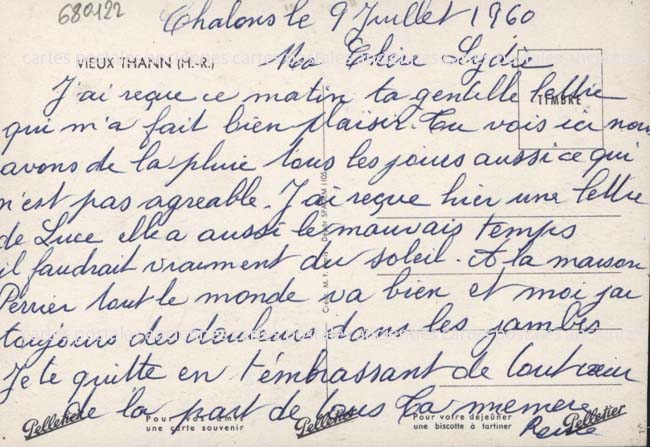 680122
Chalons le 9 Juillet 1960
VIEUX THANN (H.-R.)
Ma Chère Lydie
TIMBRE
J'ai reçue ce matin ta gentille lettre
qui m'a fait bien plaisir. Tu vois ici nous
avons de la pluie tous les jours aussi ce qui
n'est pas agreable. J'ai reçue hier une lettre
de Luce elle a aussi le mauvais temps
il faudrait vraiment du soleil. A la maison
Perrier tout le monde va bien et moi j'ai
toujours des douleurs dans les jambes
Je te quitte en t'embrassant de tout cœur
de la part de tous ta mémère
Pelletier
Pour vos amis
une carte souvenir
Pelletier
Pour votre déjeuner
une biscotte à tartiner
Pelletier